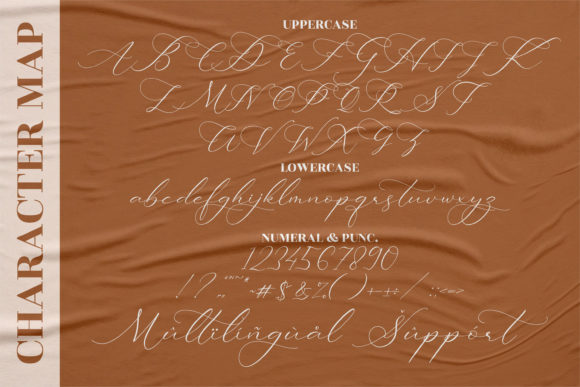 CHARACTER MAP
UPPERCASE
A B C D E F G H I J K
L M N O P Q R S T
U V W X Y Z
LOWERCASE
abcdefghijklmnopqrstuvwxyz
NUMERAL & PUNC.
1234567890
! ? ~ # $ & % ( ) + ± ÷ / : ; < = >
Mùltïlíñgùål Šùppórt